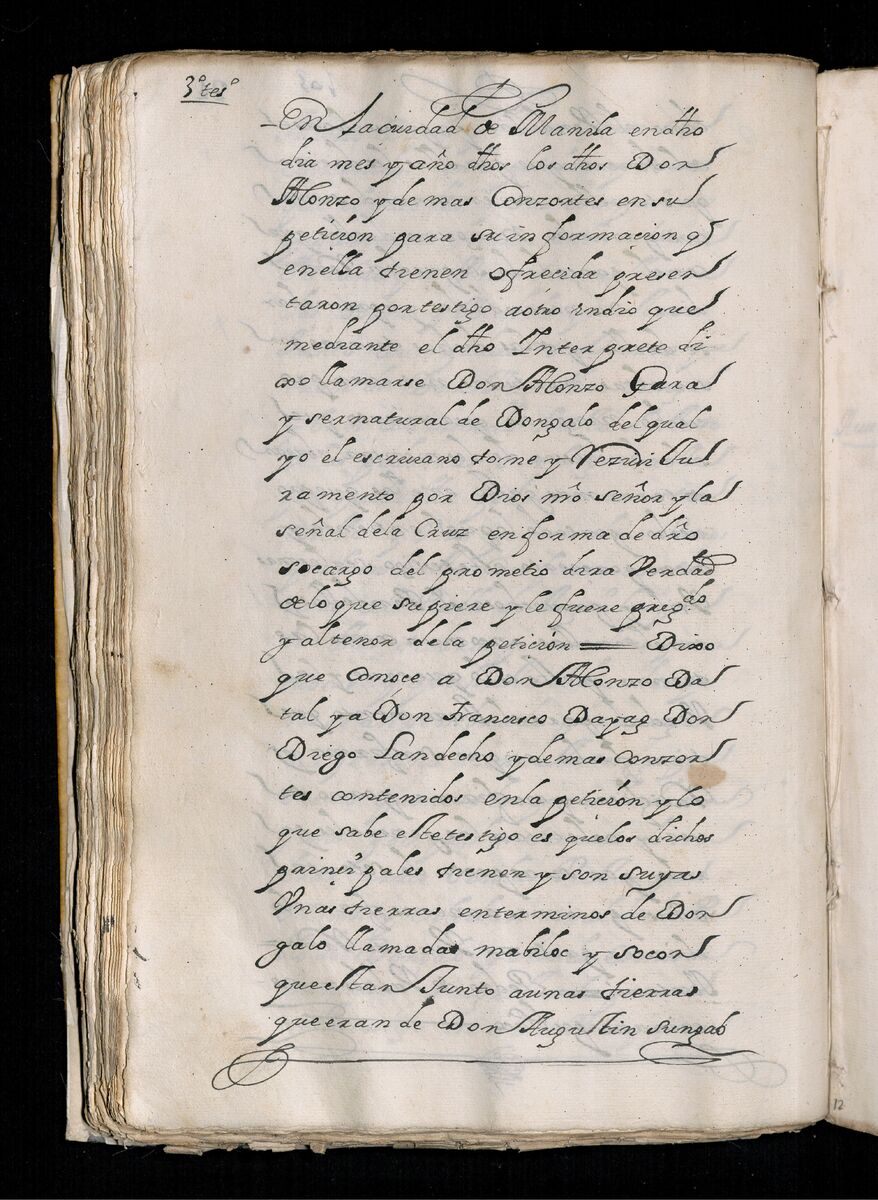 3º tesº
En la ciudad de Manila en dho
dia mes y año dhos los dhos Don
Alonzo y demas Conzortes en su
peticion para su informacion q
en ella tienen ofrecida presen
taron por testigo a otro indio que
mediante el dho Interprete di
xo llamarse Don Alonzo Gara
y ser natural de Dongalo del qual
yo el escrivano tome y Rezevi Ju
ramento por Dios nrõ señor y la
señal de la Cruz en forma de drõ
so cargo del prometio dira Verdad
de lo que supiere y le fuere pregdo
y al tenor de la peticion = Dixo
que Conoce a Don Alonzo Da
tal y a Don Francisco Dayag Don
Diego Landecho y demas Conzor
tes contenidos en la peticion y lo
que sabe este testigo es que los dichos
principales tienen y son suyas
Vnas tierras en terminos de Don
galo llamadas mabiloc y socor
que estan Junto a unas tierras
que eran de Don Augustin Sungab
12